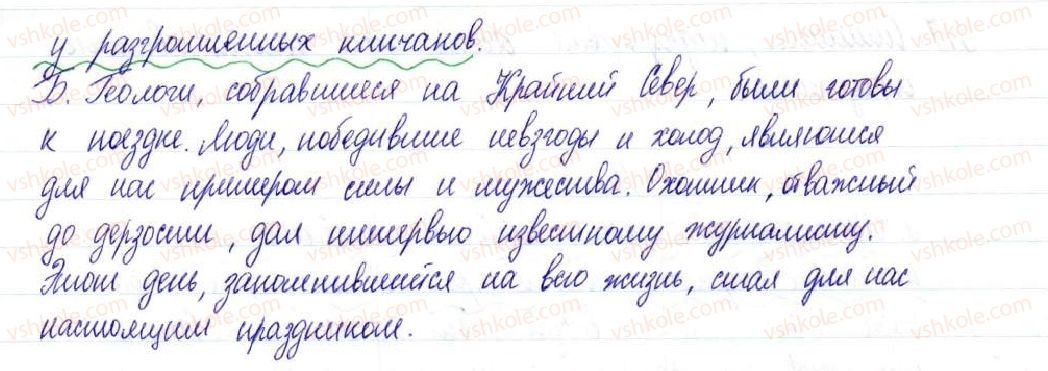 у разгромленных кипчаков.
Б. Геологи, собравшиеся на Крайний Север, были готовы
к поездке. Люди, победившие невзгоды и холод, являются
для нас примером силы и мужества. Охотник, отважный
до дерзости, дал интервью известному журналисту.
Этот день, запомнившийся на всю жизнь, стал для нас
настоящим праздником.